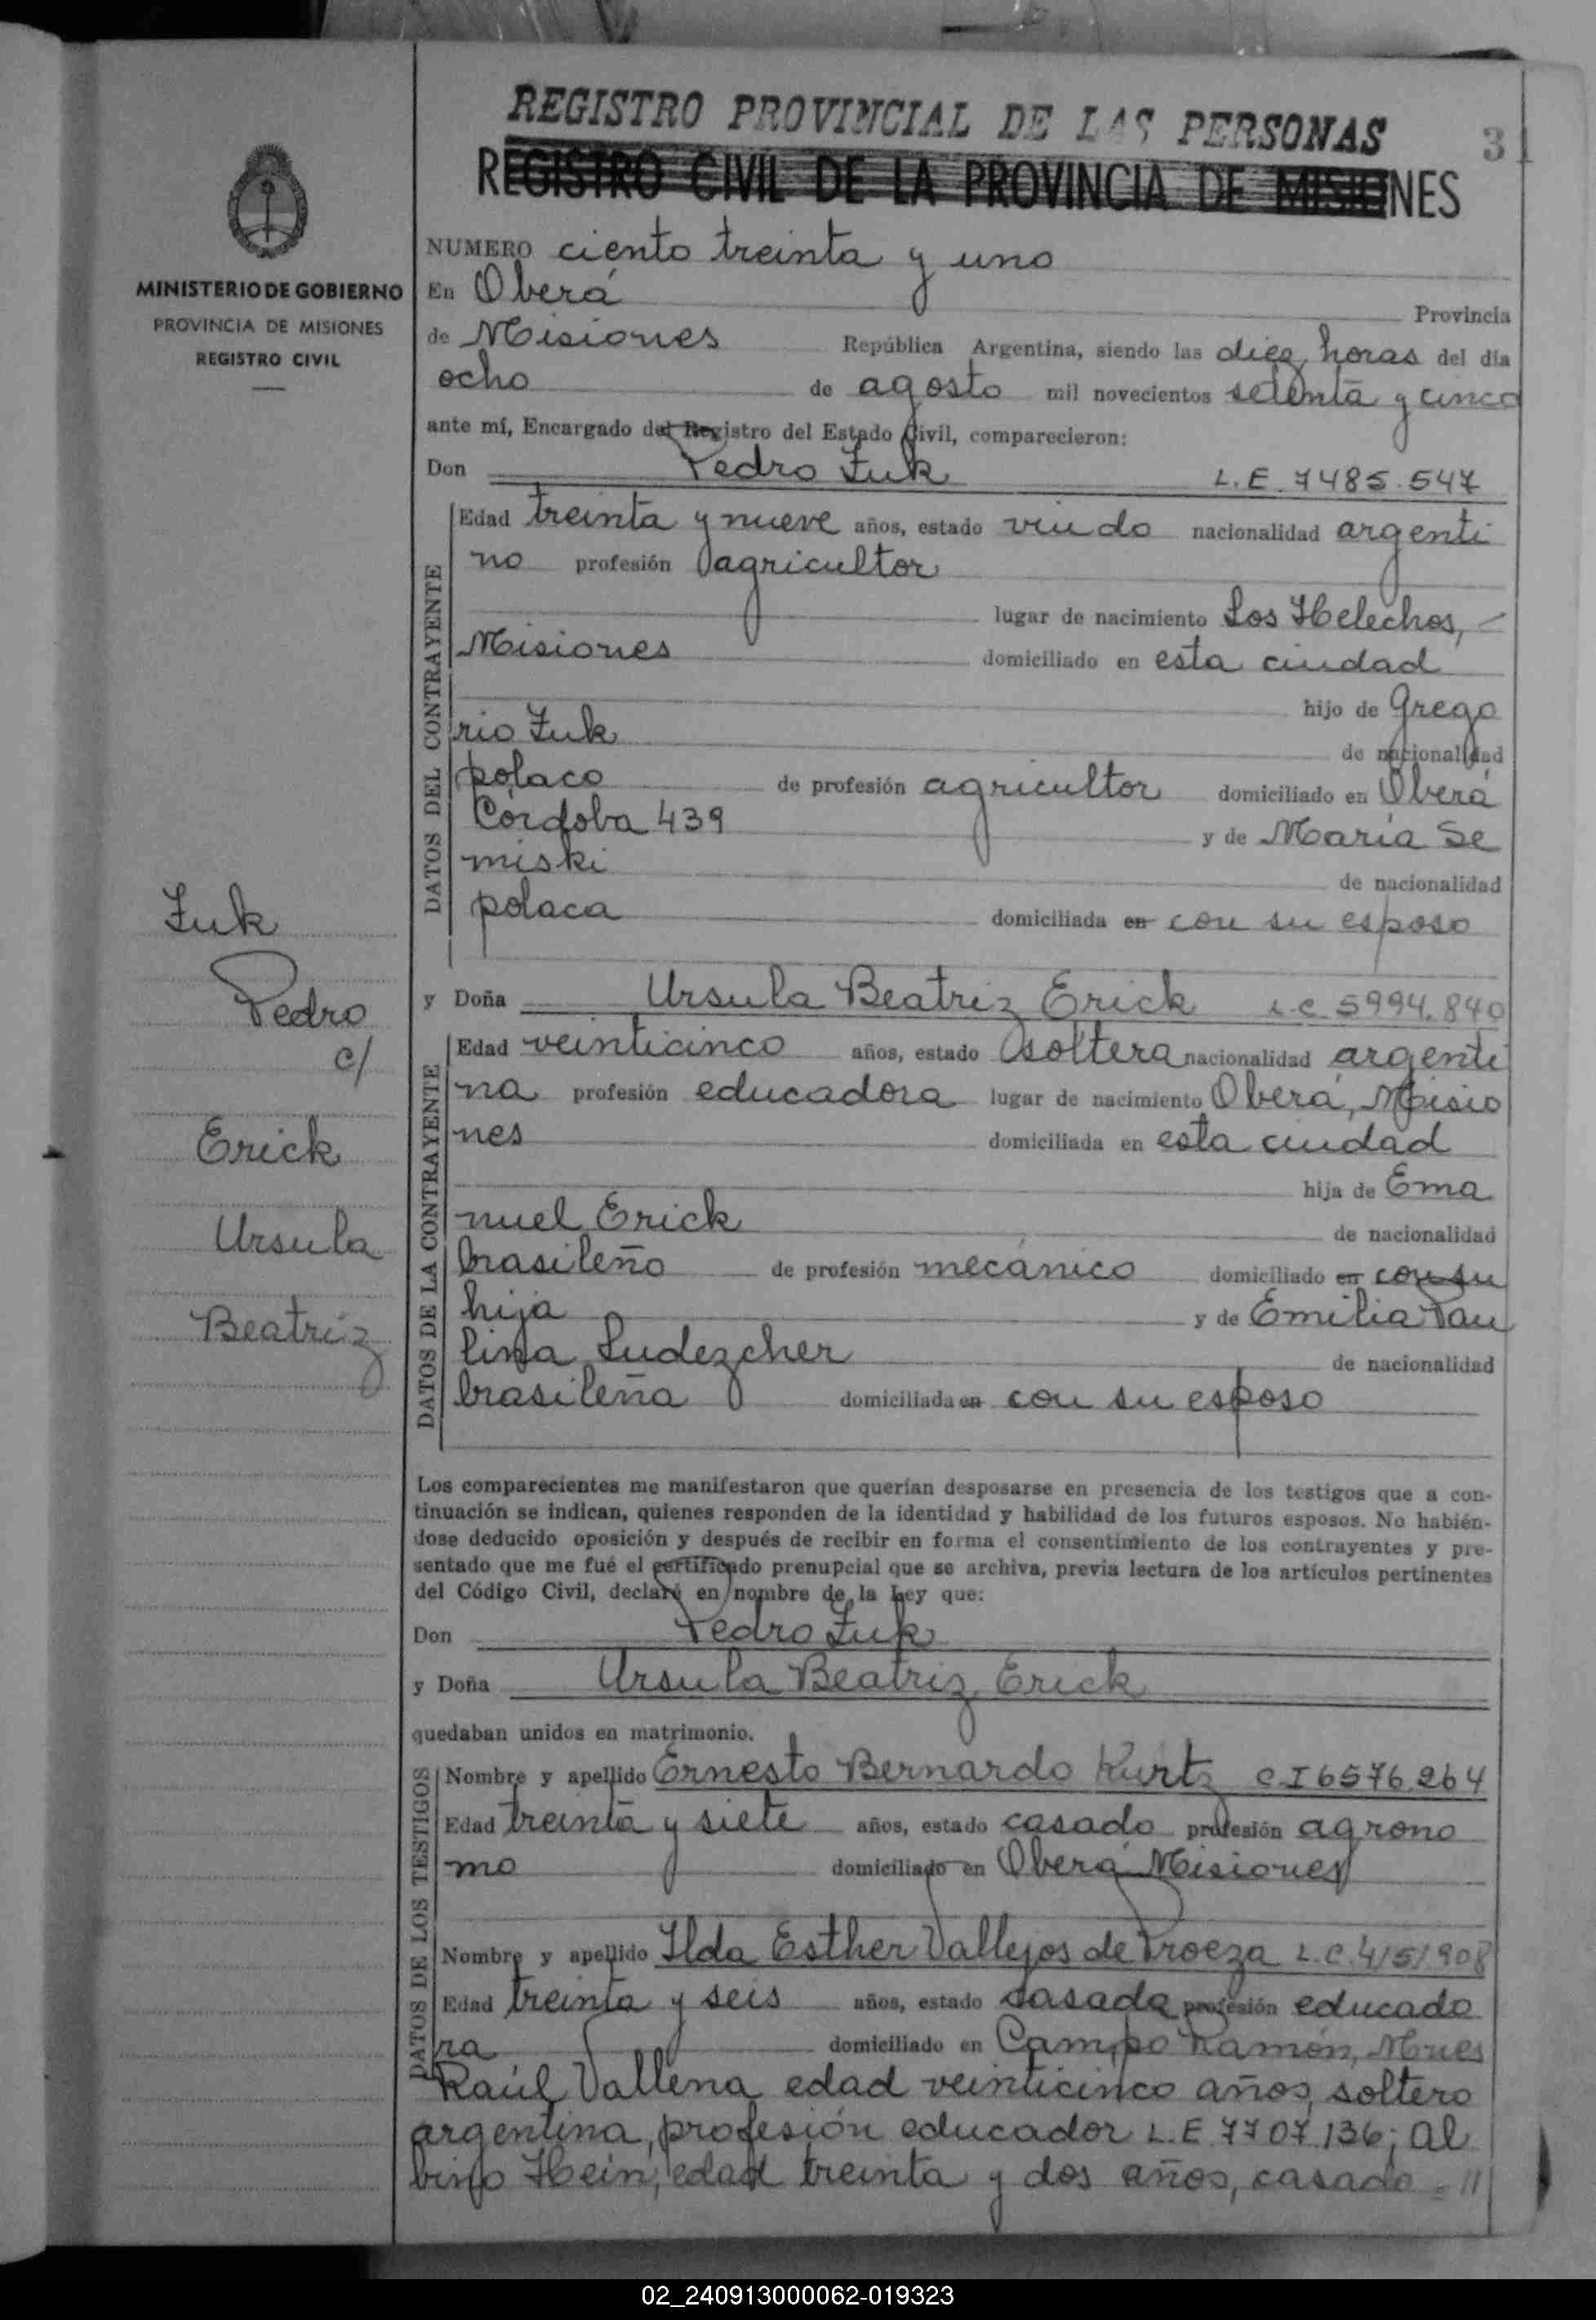 REGISTRO PROVINCIAL DE LAS PERSONAS
31
REGISTRO CIVIL DE LA PROVINCIA DE MISIONES
MINISTERIO DE GOBIERNO
PROVINCIA DE MISIONES
REGISTRO CIVIL
Zuk
Pedro
c/
Erick
Ursula
Beatriz
NUMERO ciento treinta y uno
En Oberá Provincia
de Misiones República Argentina, siendo las diez horas del día
ocho de agosto mil novecientos setenta y cinco
ante mí, Encargado del Registro del Estado Civil, comparecieron:
Don Pedro Zuk L.E. 7485.547
DATOS DEL CONTRAYENTE
Edad treinta y nueve años, estado viudo nacionalidad argenti
no profesión agricultor
lugar de nacimiento Los Helechos,
Misiones domiciliado en esta ciudad
hijo de Grego
rio Zuk de nacionalidad
polaco de profesión agricultor domiciliado en Oberá
Córdoba 439 y de María Se
miski de nacionalidad
polaca domiciliada en con su esposo
y Doña Ursula Beatriz Erick L.C. 5994.840
DATOS DE LA CONTRAYENTE
Edad veinticinco años, estado soltera nacionalidad argenti
na profesión educadora lugar de nacimiento Oberá, Misio
nes domiciliada en esta ciudad
hija de Ema
nuel Erick de nacionalidad
brasileño de profesión mecánico domiciliado en con su
hija y de Emilia Pau
lina Ludezcher de nacionalidad
brasileña domiciliada en con su esposo
Los comparecientes me manifestaron que querían desposarse en presencia de los testigos que a con-
tinuación se indican, quienes responden de la identidad y habilidad de los futuros esposos. No habién-
dose deducido oposición y después de recibir en forma el consentimiento de los contrayentes y pre-
sentado que me fué el certificado prenupcial que se archiva, previa lectura de los artículos pertinentes
del Código Civil, declaré en nombre de la Ley que:
Don Pedro Zuk
y Doña Ursula Beatriz Erick
quedaban unidos en matrimonio.
DATOS DE LOS TESTIGOS
Nombre y apellido Ernesto Bernardo Kurtz C.I 6576.264
Edad treinta y siete años, estado casado profesión agrono
mo domiciliado en Oberá Misiones
Nombre y apellido Ilda Esther Vallejos de Proeza L.C. 4151908
Edad treinta y seis años, estado casada profesión educado
ra domiciliado en Campo Ramón, Mnes
Raúl Vallena edad veinticinco años, soltero
argentina, profesión educador L.E 7707.136; Al
bino Hein, edad treinta y dos años, casado = //
02_240913000062-019323